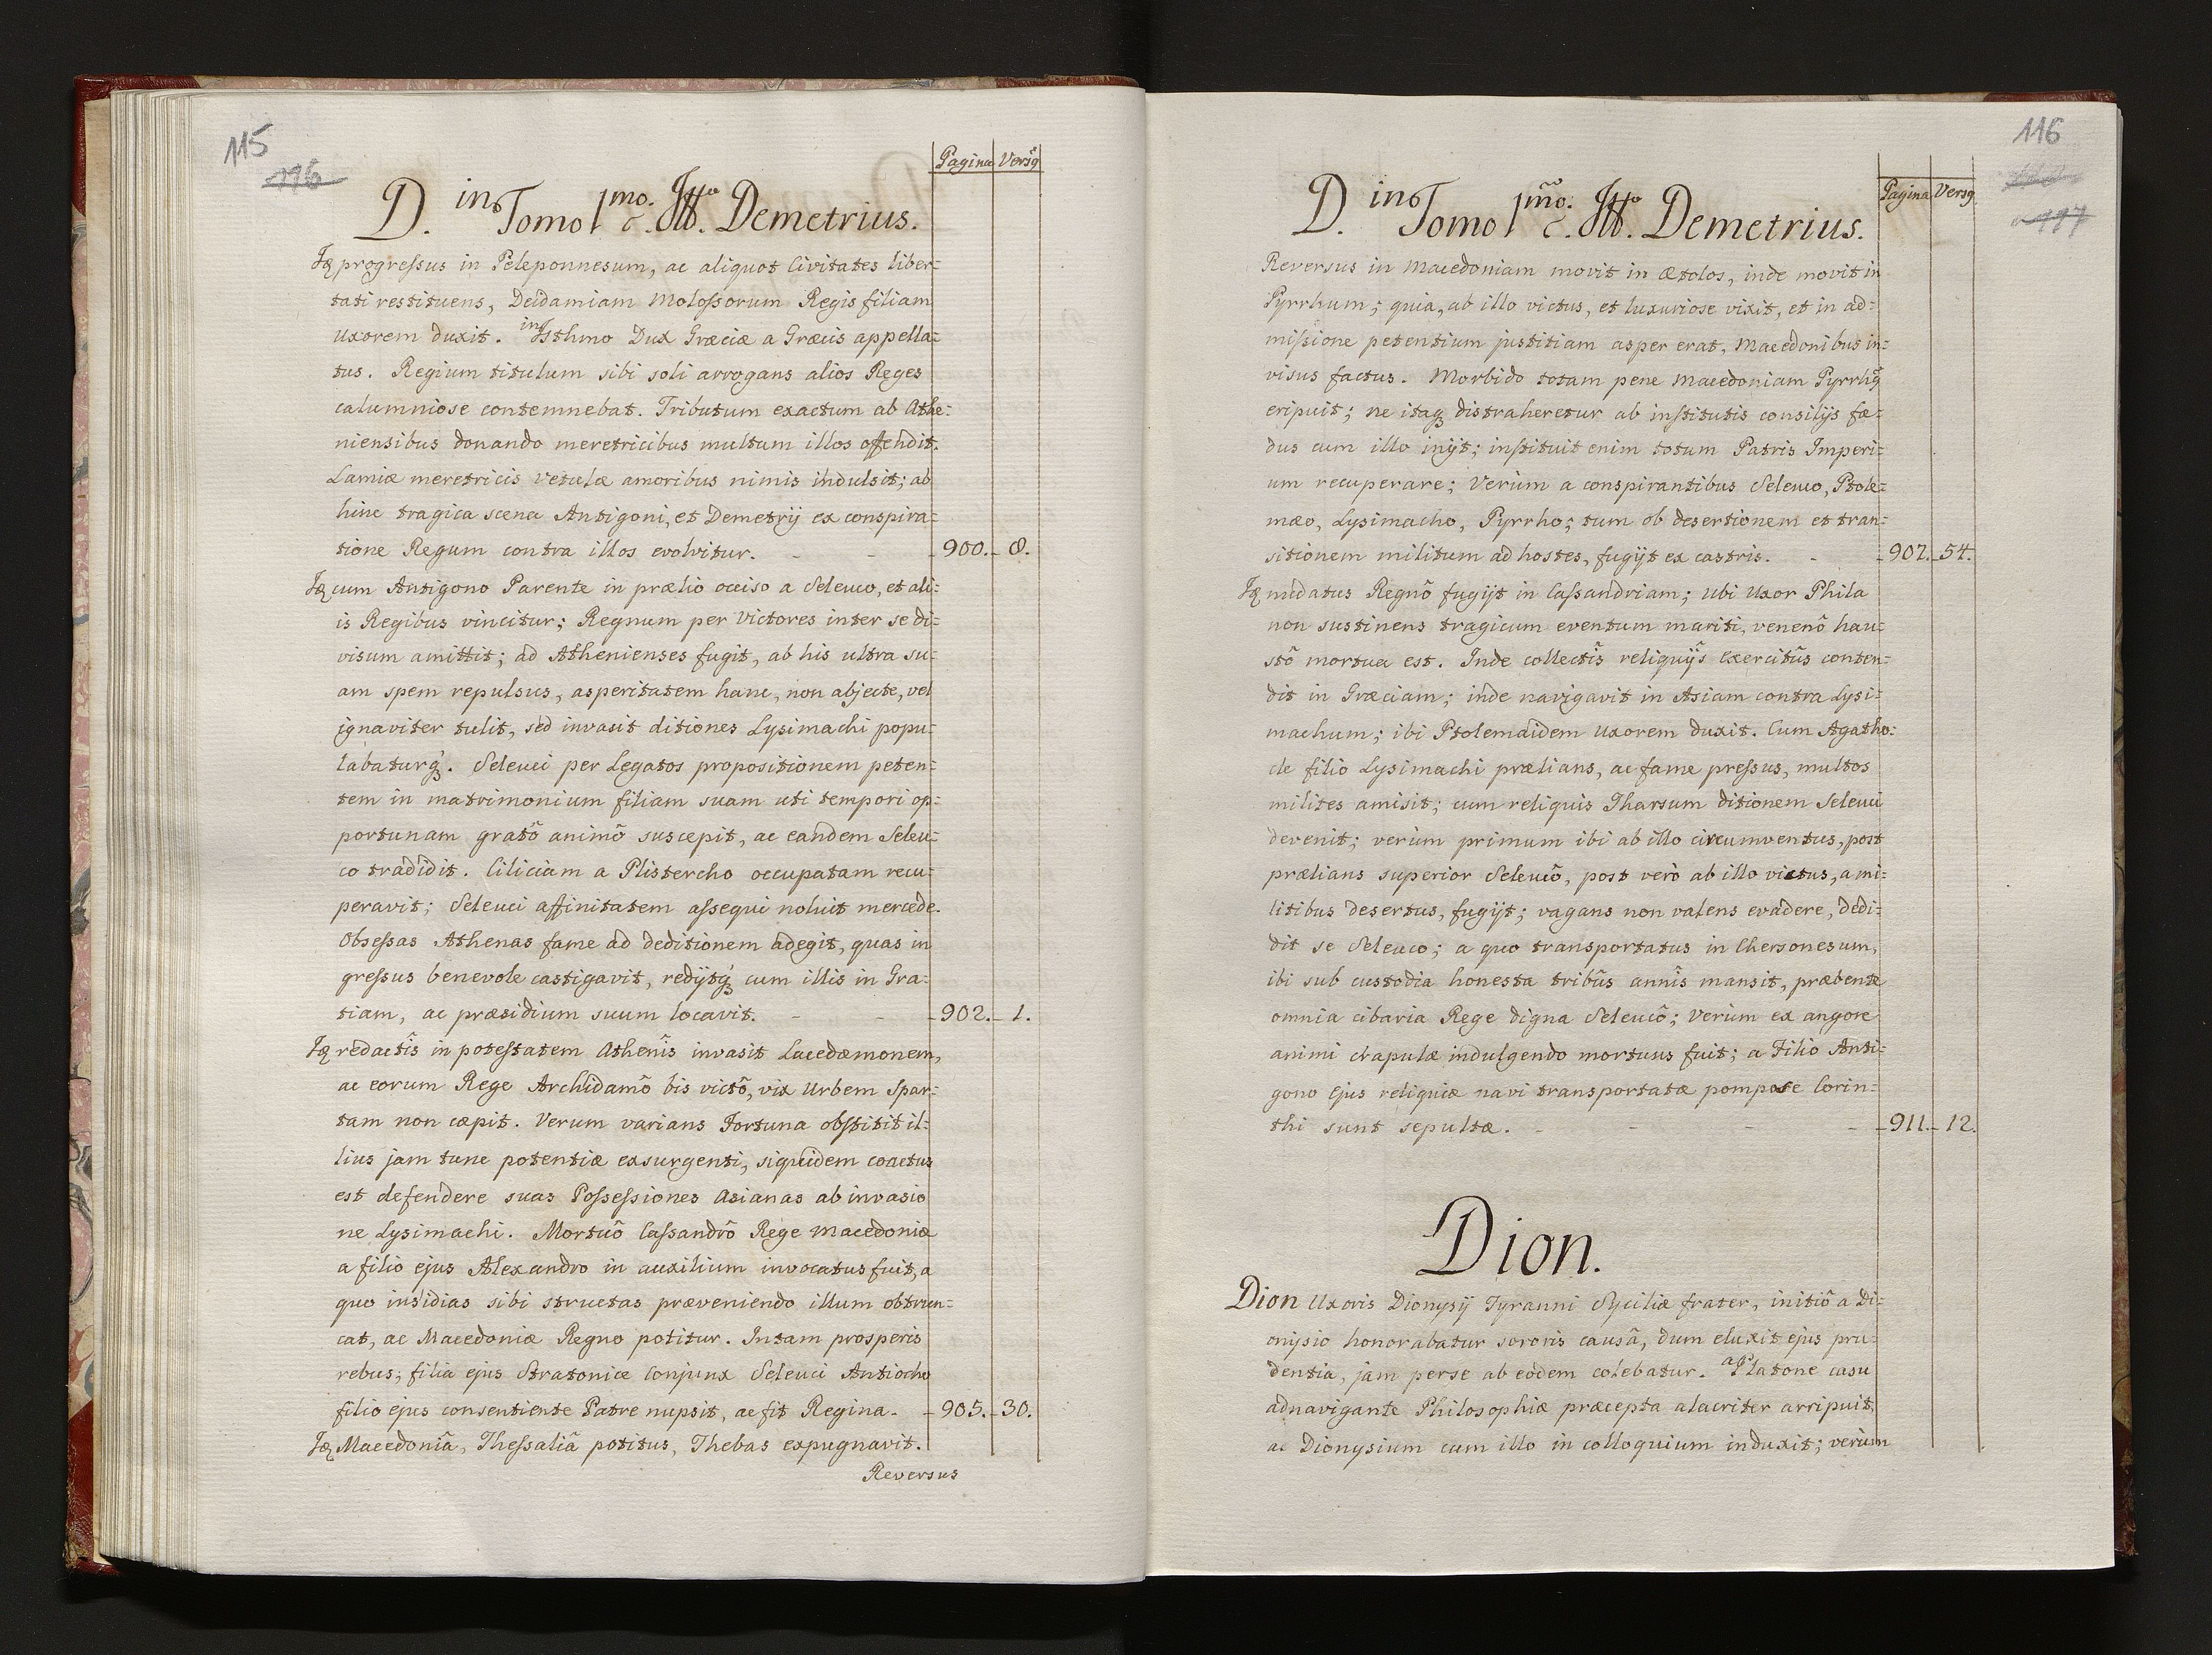 115
116
Pagina Versq
D. in Tomo 1mo. c. Demetrius.
progressus in Peleponnesum, ac aliquot Civitates liber=
tati restituens, Deidamiam Molossorum Regis filiam
Uxorem duxit. in Isthmo Dux Græciæ a Græcis appella=
tus. Regium titulum sibi soli arrogans alios Reges
calumniose contemnebat. Tributum exactum ab Athe=
niensibus donando meretricibus multum illos offendit.
Lamiæ meretricis vetulæ amoribus nimis indulsit; ab
hinc tragica scena Antigoni, et Demetrij ex conspira=
tione Regum contra illos evolvitur. - - - 900. - 8.
cum Antigono Parente in prælio occiso a Seleuco, et ali=
is Regibus vincitur; Regnum per Victores inter se di=
visum amittit; ad Athenienses fugit, ab his ultra su=
am spem repulsus, asperitatem hanc, non abjecte, vel
ignaviter tulit, sed invasit ditiones Lysimachi popu=
labaturq́. Seleuci per Legatos propositionem peten=
tem in matrimonium filiam suam uti tempori op=
portunam gratô animô suscepit, ac eandem Seleu=
co tradidit. Ciliciam a Plistercho occupatam recu=
peravit; Seleuci affinitatem assequi noluit mercede.
Obsessas Athenas fame ad deditionem adegit, quas in
gressus benevole castigavit, redijtq́ cum illis in Gra=
tiam, ac præsidium suum locavit. - - - 902. - 1.
redactîs in potestatem Athenîs invasit Lacedæmonem,
ac eorum Rege Archidamô bis victô, vix Urbem Spar=
tam non cæpit. Verum varians Fortuna obstitit il=
lius jam tunc potentiæ exsurgenti, siquidem coactus
est defendere suas Possessiones Asianas ab invasio
ne Lysimachi. Mortuô Cassandrô Rege Macedoniæ
a filio ejus Alexandro in auxilium invocatus fuit, a
quo insidias sibi structas præveniendo illum obtrun=
cat, ac Macedoniæ Regno potitur. In tam prosperis
rebus; filia ejus Stratonice Conjunx Seleuci Antiocho
filio ejus consentiente Patre nupsit, ac fit Regina. - 905. - 30.
Macedoniâ, Thessaliâ potitus, Thebas expugnavit.
Reversus
116
117
Pagina Versq
D. in Tomo 1mo. c. Demetrius.
Reversus in Macedoniam movit in Ætolos, inde movit in
Pyrrhum; quia, ab illo victus, et luxuriose vixit, et in ad=
missione petentium justitiam asper erat, Macedonibus in=
visus factus. Morbido totam pene Macedoniam Pyrrhq
eripuit; ne itaq distraheretur ab institutis consilijs fæ=
dus cum illo inijt; instituit enim totum Patris Imperi=
um recuperare; Verùm a conspirantibus Seleuco, Ptole=
mæo, Lysimacho, Pyrrho; tum ob desertionem et tran=
sitionem militum ad hostes, fugijt ex castris. - - 907. - 54.
nudatus Regnô fugijt in Cassandriam; ubi Uxor Phila
non sustinens tragicum eventum mariti, venenô hau=
stô mortua est. Inde collectîs reliquijs Exercitûs conten=
dit in Græciam; inde navigavit in Asiam contra Lysi=
machum; ibi Ptolemaidem Uxorem duxit. Cum Agatho=
cle filio Lysimachi prælians, ac fame pressus, multos
milites amisit; cum reliquis Tharsum ditionem Seleuci
devenit; verùm primum ibi ab illo circumventus, post
prælians superior Seleucô, post verò ab illo victus, a mi=
litibus desertus, fugijt; vagans non valens evadere, dedi=
dit se Seleuco; a quo transportatus in Chersonesum,
ibi sub custodia honesta tribûs annîs mansit, præbente
omnia cibaria Rege digna Seleucô; Verùm ex angore
animi crapulæ indulgendo mortuus fuit; a Filio Anti=
gono Ejus reliquiæ navi transportatæ pompose Corin=
thi sunt sepultæ. - - - - 911. - 12.
Dion.
Dion Uxoris Dionysij Tyranni Syciliæ frater, initiô a Di=
onijsio honorabatur sororis causâ, dum eluxit ejus pru=
dentia, jam perse ab eodem colebatur. a Platone casu
adnavigante Philosophiæ præcepta alacriter arripuit,
ac Dionysium cum illo in colloquium induxit; verùm